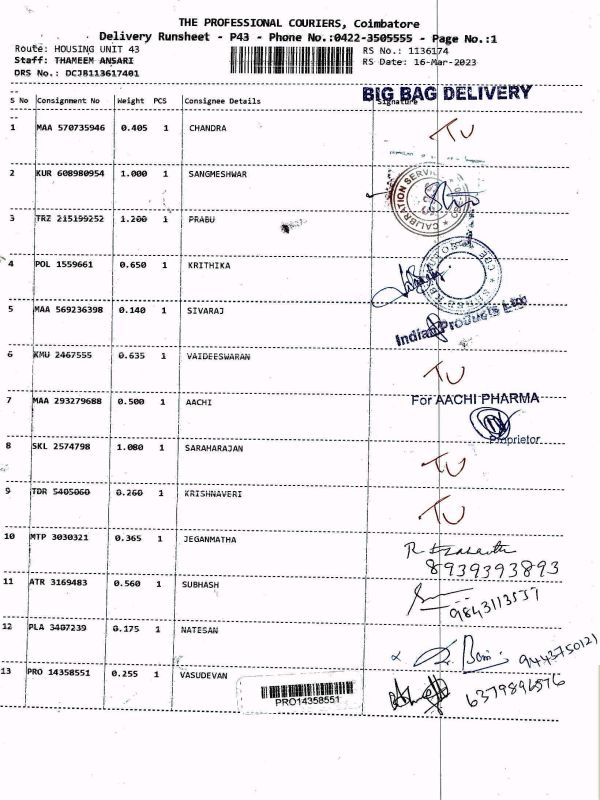 THE PROFESSIONAL COURIERS, Coimbatore
Delivery Runsheet - P43 - Phone No.:0422-3505555 - Page No.:1
Route: HOUSING UNIT 43 RS No.: 1136174
Staff: THAMEEM ANSARI RS Date: 16-Mar-2023
DRS No.: DCJB113617401
BIG BAG DELIVERY
S No Consignment No Weight PCS Consignee Details Signature
1 MAA 570735946 0.405 1 CHANDRA TU
2 KUR 608980954 1.000 1 SANGMESHWAR
CALIBRATION
3 TRZ 215199252 1.200 1 PRABU
4 POL 1559661 0.650 1 KRITHIKA
5 MAA 569236398 0.140 1 SIVARAJ
Indian Products Ltd
6 KMU 2467555 0.635 1 VAIDEESWARAN TU
7 MAA 293279688 0.500 1 AACHI For AACHI PHARMA
Proprietor
8 SKL 2574798 1.080 1 SARAHARAJAN TU
9 TDR 5405060 0.260 1 KRISHNAVERI TU
10 MTP 3030321 0.365 1 JEGANMATHA
8939393893
11 ATR 3169483 0.560 1 SUBHASH
9843113537
12 PLA 3407239 0.175 1 NATESAN
9443750121
13 PRO 14358551 0.255 1 VASUDEVAN 6379896576
PRO14358551